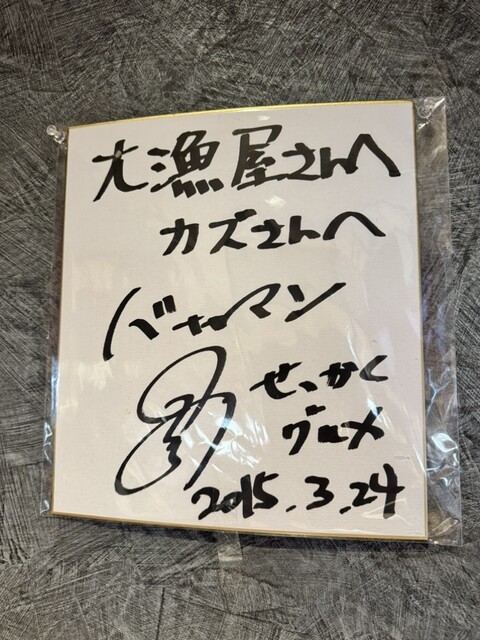 大漁屋さんへ
カズさんへ
バナナマン
せっかく
グルメ
2015.3.24